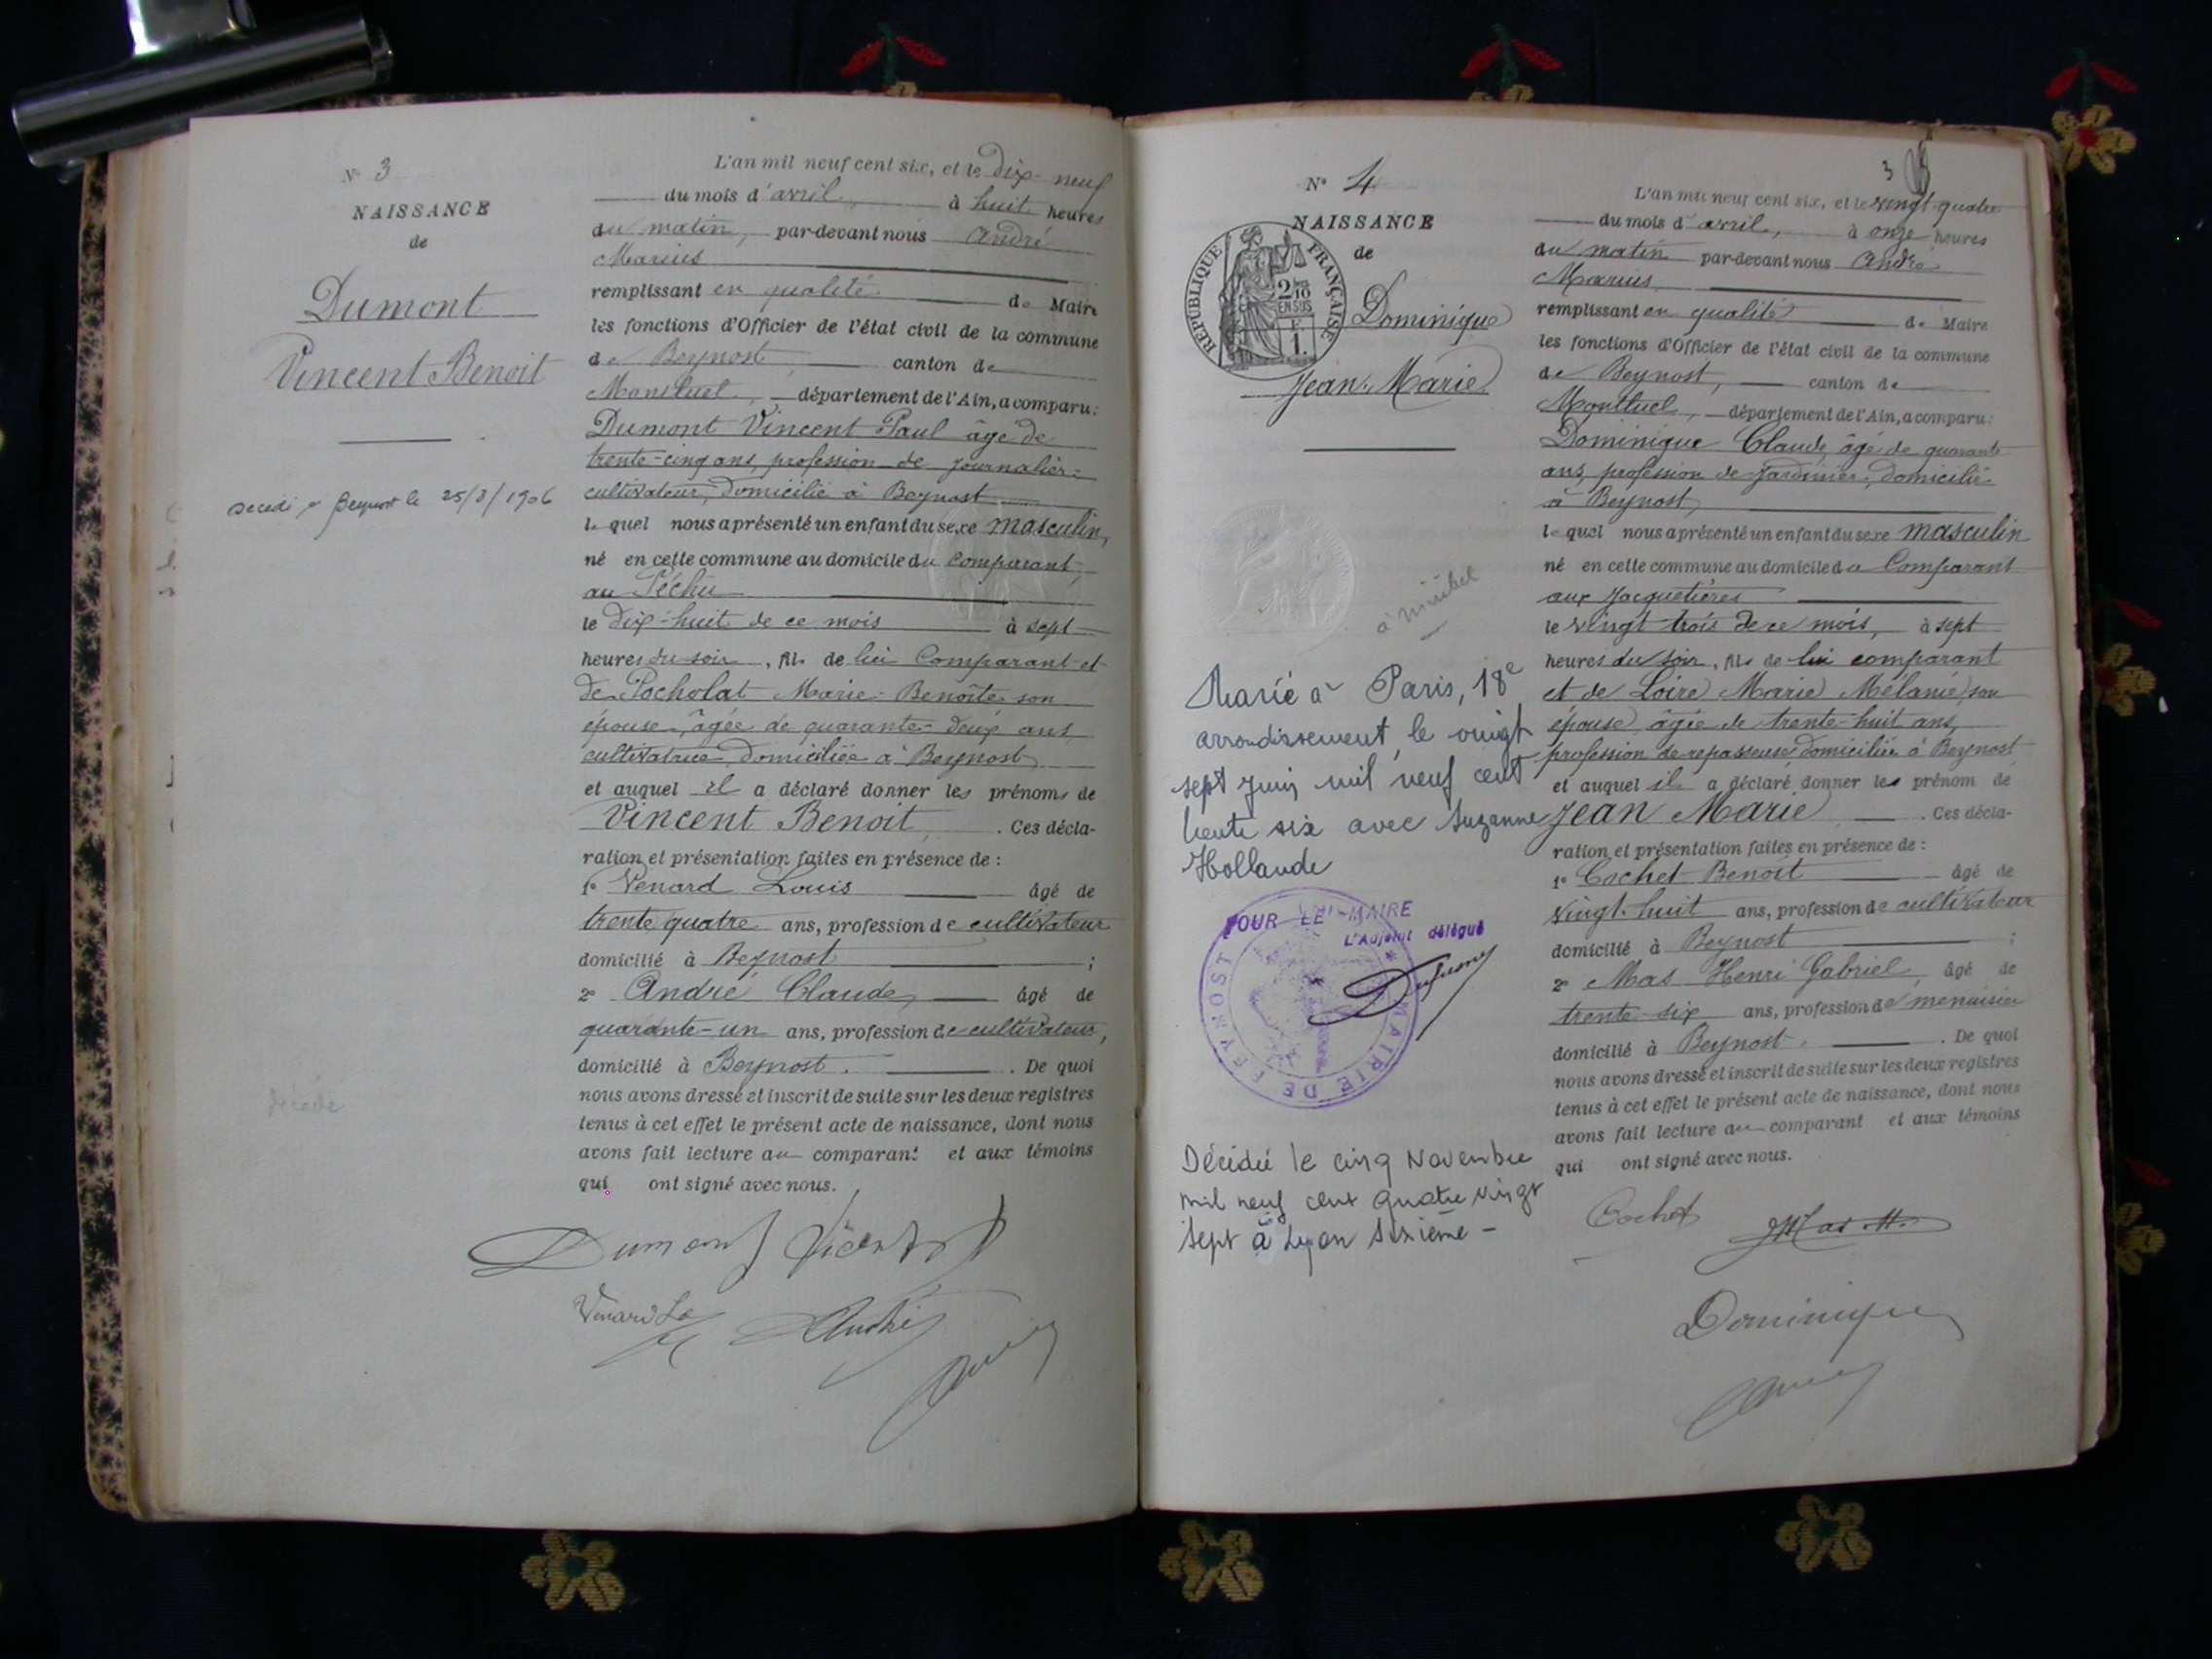 N° 3
NAISSANCE
de
Dumont
Vincent Benoit
Décédé à Beynost le 25/8/1906
décédé
L'an mil neuf cent six, et le dix-neuf
du mois d'avril, à huit heures
du matin, par-devant nous André
Marius
remplissant en qualité de Maire
les fonctions d'Officier de l'état civil de la commune
de Beynost, canton de
Montluel, département de l'Ain, a comparu:
Dumont Vincent Paul âgé de
trente-cinq ans, profession de journalier-
cultivateur, domicilié à Beynost
lequel nous a présenté un enfant du sexe masculin,
né en cette commune au domicile du comparant,
au Péchu
le dix-huit de ce mois à sept
heures du soir, fils de lui comparant et
de Pocholat Marie-Benoîte son
épouse, âgée de quarante-deux ans
cultivatrice, domiciliée à Beynost
et auquel il a déclaré donner les prénoms de
Vincent Benoit. Ces décla-
ration et présentation faites en présence de :
1° Venard Louis âgé de
trente quatre ans, profession de cultivateur
domicilié à Beynost ;
2° André Claude, âgé de
quarante-un ans, profession de cultivateur,
domicilié à Beynost. De quoi
nous avons dressé et inscrit de suite sur les deux registres
tenus à cet effet le présent acte de naissance, dont nous
avons fait lecture au comparant et aux témoins
qui ont signé avec nous.
Dumont Vicent
Venard Ls
André
3
N° 4
NAISSANCE
de
RÉPUBLIQUE FRANÇAISE
2/10
EN SUS
F.
1.
Dominique
Jean-Marie
à Miribel
Marié à Paris, 18e
arrondissement, le vingt
sept juin mil neuf cent
trente six avec Suzanne
Hollande
POUR LE MAIRE
L'Adjoint délégué
MAIRIE DE BEYNOST
Décédé le cinq Novembre
mil neuf cent quatre vingt
sept à Lyon sixième -
L'an mil neuf cent six, et le vingt-quatre
du mois d'avril, à onze heures
du matin par-devant nous André
Marius
remplissant en qualité de Maire
les fonctions d'Officier de l'état civil de la commune
de Beynost, canton de
Montluel, département de l'Ain, a comparu:
Dominique Claude, âgé de quarante
ans, profession de jardinier, domicilié
à Beynost,
lequel nous a présenté un enfant du sexe masculin
né en cette commune au domicile du comparant
aux Jacquetières
le vingt-trois de ce mois, à sept
heures du soir, fils de lui comparant
et de Loire Marie Mélanie, son
épouse, âgée de trente-huit ans,
profession de repasseuse domiciliée à Beynost
et auquel il a déclaré donner les prénom de
Jean Marie. Ces décla-
ration et présentation faites en présence de :
1° Cochet Benoit âgé de
vingt-huit ans, profession de cultivateur
domicilié à Beynost ;
2° Mas Henri Gabriel, âgé de
trente-six ans, profession de menuisier
domicilié à Beynost. De quoi
nous avons dressé et inscrit de suite sur les deux registres
tenus à cet effet le présent acte de naissance, dont nous
avons fait lecture au comparant et aux témoins
qui ont signé avec nous.
Cochet
Mas H.
Dominique